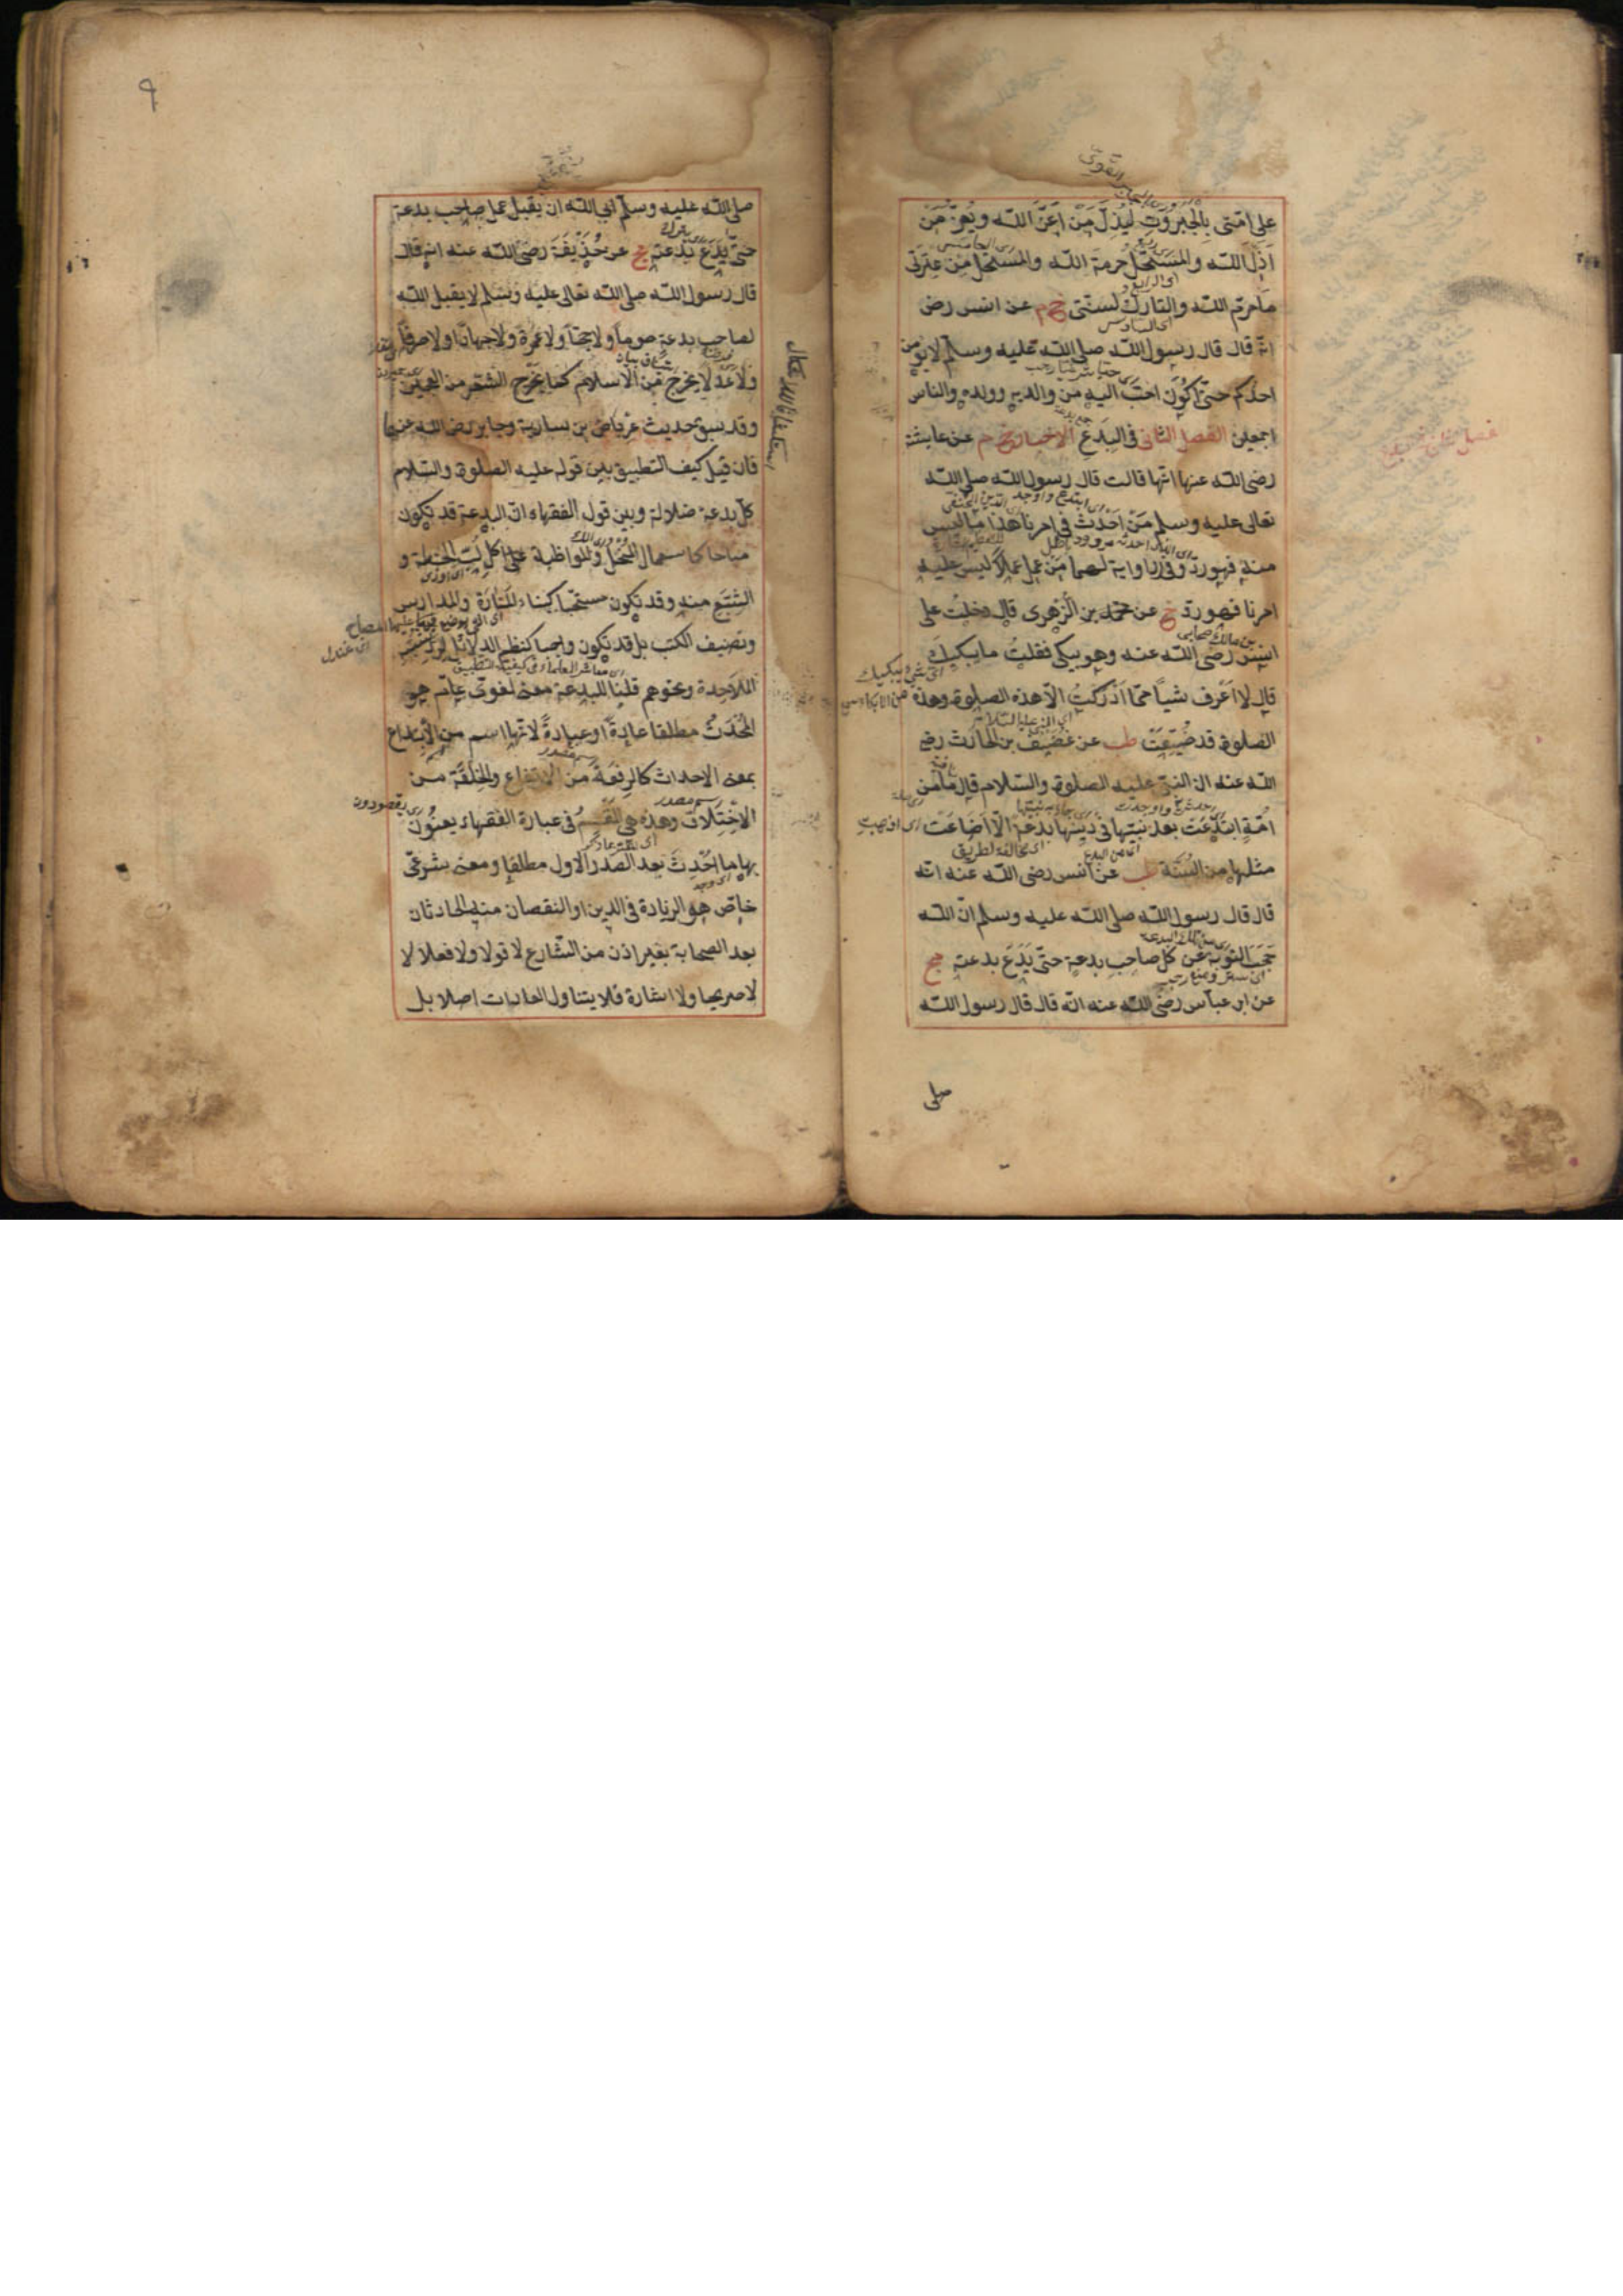 على امتى بالجبروت ليذل من اعز الله ويعز من
اذل الله والمستحل حرمة الله والمستحل من عترتى
ما حرم الله والتارك لسنتى خ م عن انس رض
انه قال قال رسول الله صلى الله عليه وسلم لا يؤمن
احدكم حتى اكون احب اليه من والده وولده والناس
اجمعين الفصل الثانى فى البدع الاخبار خ م عن عايشة
رضى الله عنها انها قالت قال رسول الله صلى الله
تعالى عليه وسلم من احدث فى امرنا هذا ما ليس
منه فهو رد وفى رواية لهما من عمل عملا ليس عليه
امرنا فهو رد خ عن محمد بن الزهرى قال دخلت على
انس رضى الله عنه وهو يبكى فقلت ما يبكيك
قال لا اعرف شيأ مما ادركت الا هذه الصلوة وهذه
الصلوة قد ضيعت طب عن غضيف بن الحارث رضى
الله عنه ان النبى عليه الصلوة والسلام قال ما من
امة ابتدعت بعد نبيها فى دينها بدعة الا اضاعت
مثلها من السنة طب عن انس رضى الله عنه انه
قال قال رسول الله صلى الله عليه وسلم ان الله
حجب التوبة عن كل صاحب بدعة حتى يدع بدعته مج
عن ابن عباس رضى الله عنه انه قال قال رسول الله
صلى
٩
صلى الله عليه وسلم ابى الله ان يقبل عمل صاحب بدعة
حتى يدع بدعته مج عن حذيفة رضى الله عنه انه قال
قال رسول الله صلى الله تعالى عليه وسلم لا يقبل الله
لصاحب بدعة صوما ولا حجا ولا عمرة ولا جهادا ولا صرفا
ولا عدلا يخرج من الاسلام كما يخرج الشعر من العجين
وقد سبق حديث عرباض بن سارية وجابر رضى الله عنهما
فان قيل كيف التطبيق بين قوله عليه الصلوة والسلام
كل بدعة ضلالة وبين قول الفقهاء ان البدعة قد تكون
مباحا كاستعمال المنخل والمواظبة على اكل لب الحنطة و
الشبع منه وقد تكون مستحبا كبناء المنارة والمدارس
وتصنيف الكتب بل قد تكون واجبا كنظم الدلائل لرد شبه
الملاحدة ونحوهم قلنا للبدعة معنى لغوى عام هو
المحدث مطلقا عادة او عبادة لانها اسم من الابتداع
بمعنى الاحداث كالرفعة من الارتفاع والخلفة من
الاختلاف وهذه هى المقسم فى عبارة الفقهاء يعنون
بها ما احدث بعد الصدر الاول مطلقا ومعنى شرعى
خاص هو الزيادة فى الدين او النقصان منه الحادثان
بعد الصحابة بغير اذن من الشارع لا قولا ولا فعلا لا
لا صريحا ولا اشارة فلا يتناول العادات اصلا بل